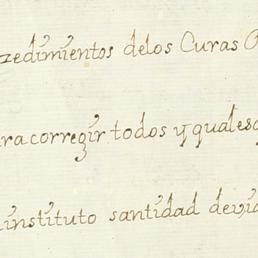 zedimientos delos Curas
ra corregir todos y quales
instituto santidad de vid